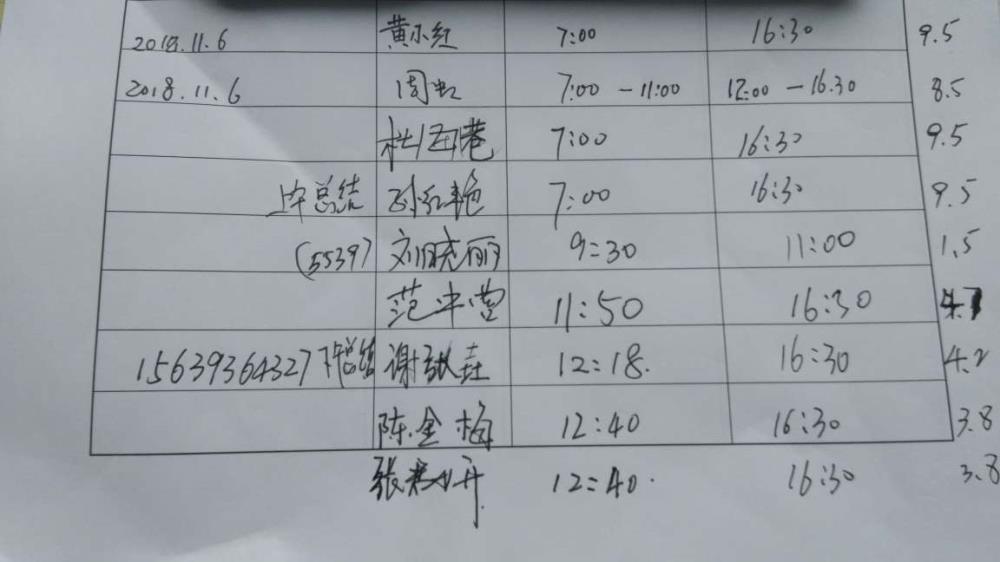 2018.11.6 黄小红 7:00 16:30 9.5
2018.11.6 周虹 7:00 - 11:00 12:00 - 16.30 8.5
杜 巷 7:00 16:30 9.5
上午总结 孙红艳 7:00 16:30 9.5
(5539) 刘晓丽 9:30 11:00 1.5
范中营 11:50 16:30 4.7
15639364327 下午总结 谢张垚 12:18. 16:30 4.2
陈金梅 12:40 16:30 3.8
张 开 12:40. 16:30 3.8